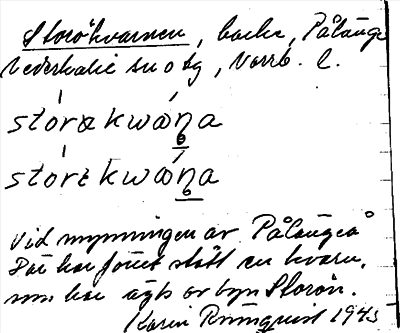 Storökvarnen, backe, Pålänge
Nederkalix sn o tg, Norrb. l.
stórækwàṇa
stórɛkwàṇa
Vid mynningen av Pålängeå
Där har förut stått en kvarn,
som har ägts av byn Storön.
Karin Rönnqvist 1943